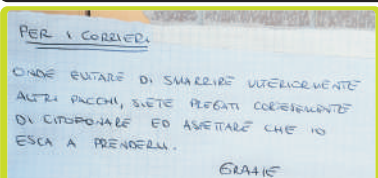 PER I CORRIERI
ONDE EVITARE DI SMARRIRE ULTERIORMENTE
ALTRI PACCHI, SIETE PREGATI CORTESEMENTE
DI CITOFONARE ED ASPETTARE CHE IO
ESCA A PRENDERLI.
GRAZIE